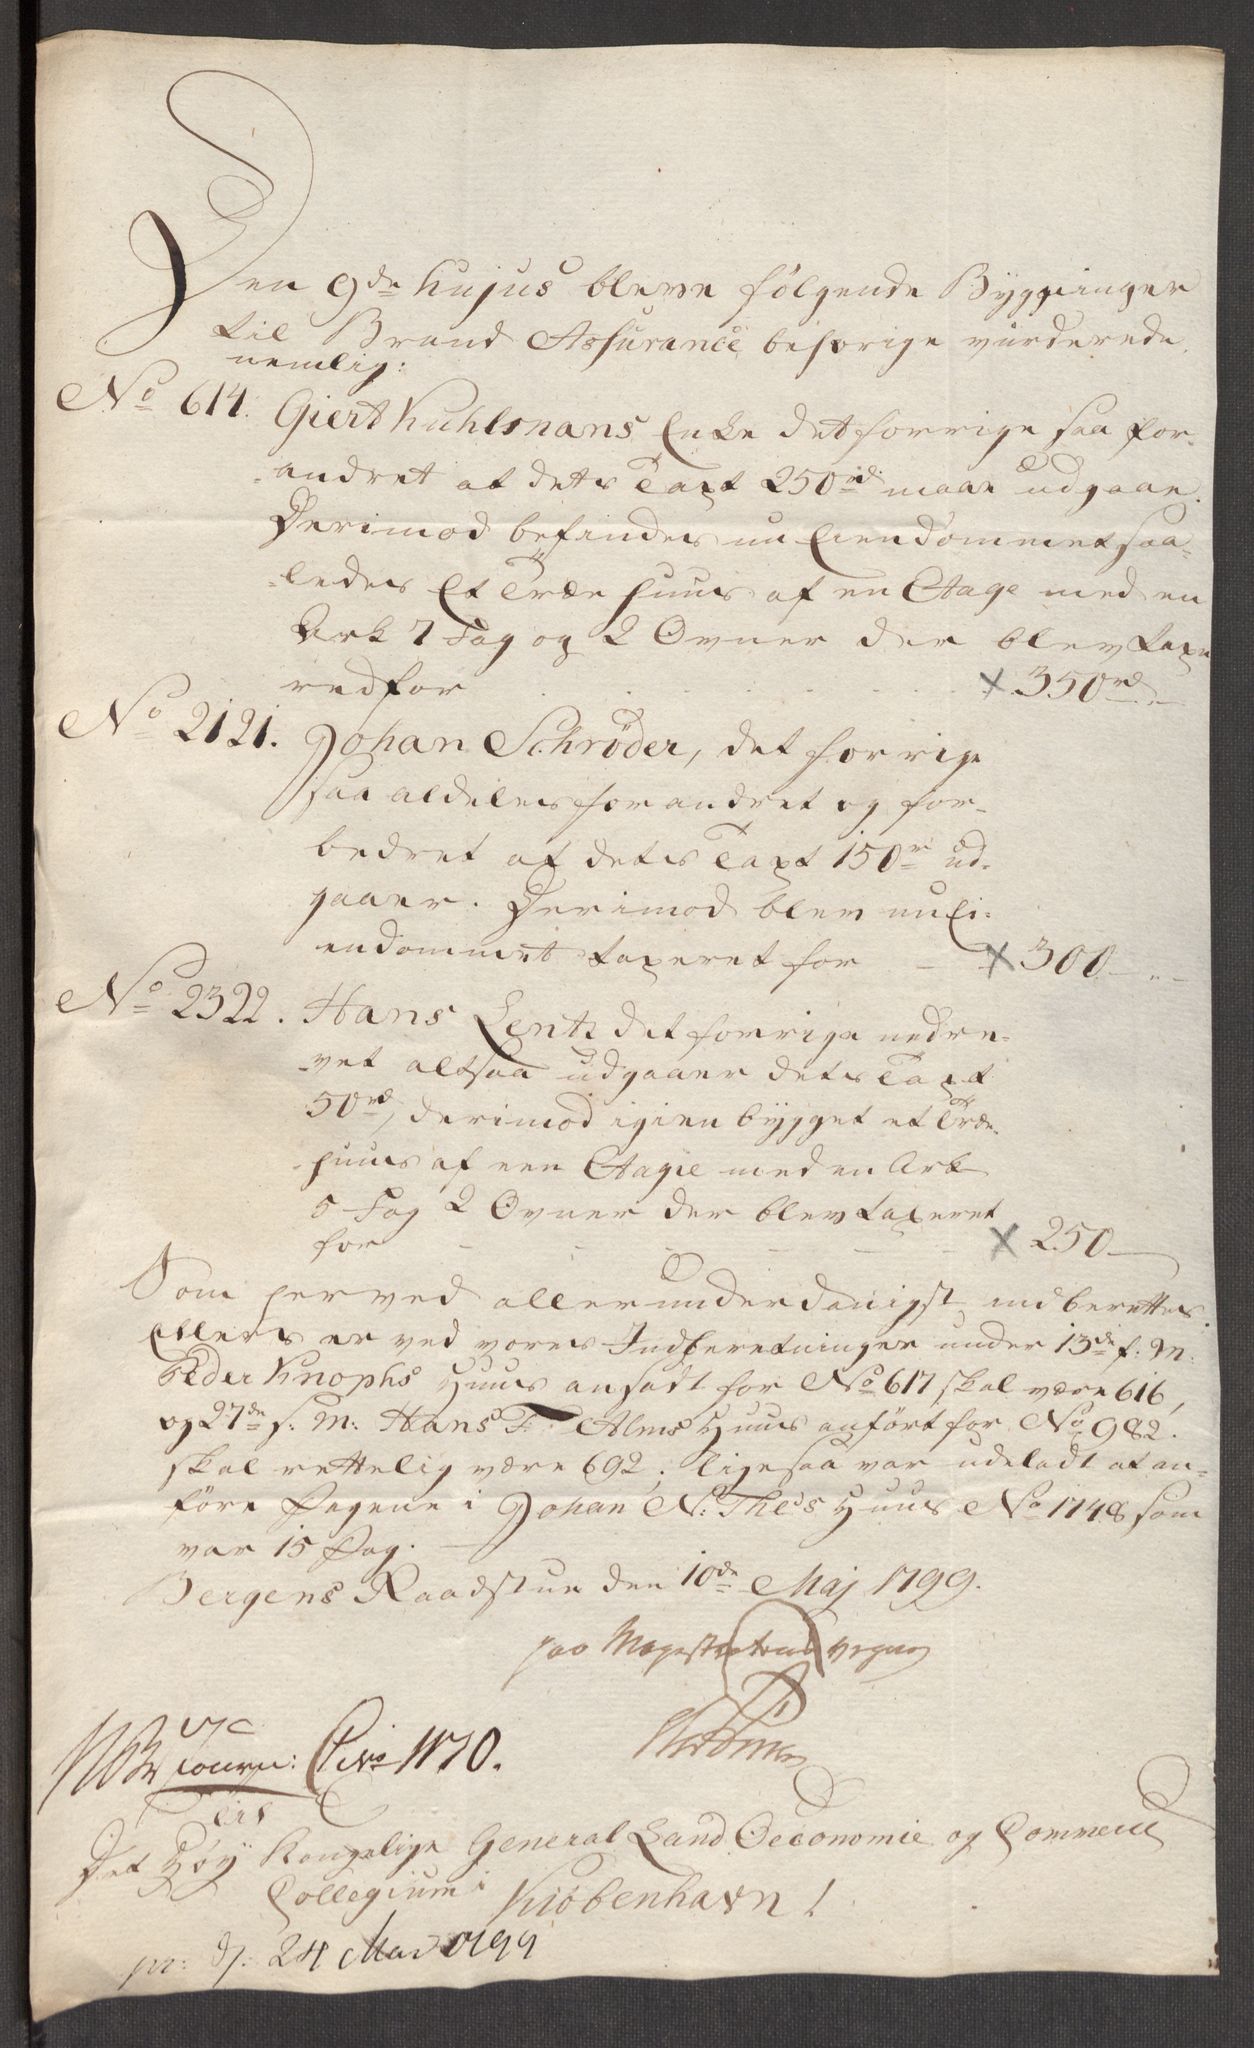 Den 9de hujus bleve følgende Bygninger
til Brand Assurance behørige vurderede
nemlig:
No 614. Giert Kuhlmans Enke det forrige saa for-
-andret at dets Taxt 250rd maae udgaae.
Derimod befindes nu Eiendommet saa-
-ledes Et Træe huus af en Etage med en
Ark 7 Fag og 2 Ovner der blev taxe
redfor . . . . . . . × 350rd
No 2121. Johan Schrøder, det forrige
saa aldeles forandret og for-
bedret at dets Taxt 150rd ud-
gaaer. Derimod blev nu Ei-
endommet taxeret for — × 300
No 2322. Hans Lentz det forrige nedre-
-vet altsaa udgaaer dets Taxt
50rd, derimod igien bÿgget et Træe
huus af een Etage med en Ark
5 Fag 2 Ovner der blev taxeret
for — — — — — × 250
Som herved allerunderdanigst indberettes.
Ellers er ved vores Indberetninger under 13de f: M:
Peder Knophs Huus ansadt for No 617 skal være 616,
og 27de s. M: Hans F: Alms Huus anført for No 982.
skal rettelig være 692, ligesaa var udeladt at an-
føre Fagene i Johan N: The's Huus No 1748 som
var 15 Fag.
Bergens Raadstue den 10de Maj 1799.
paa Magistratens vegne
Journ: No 1170.
Til
Det Høÿ Kongelige General Land Oeconomie og Commerce
Collegium i Kiøbenhavn!
pr: d: 24 Mai 1799